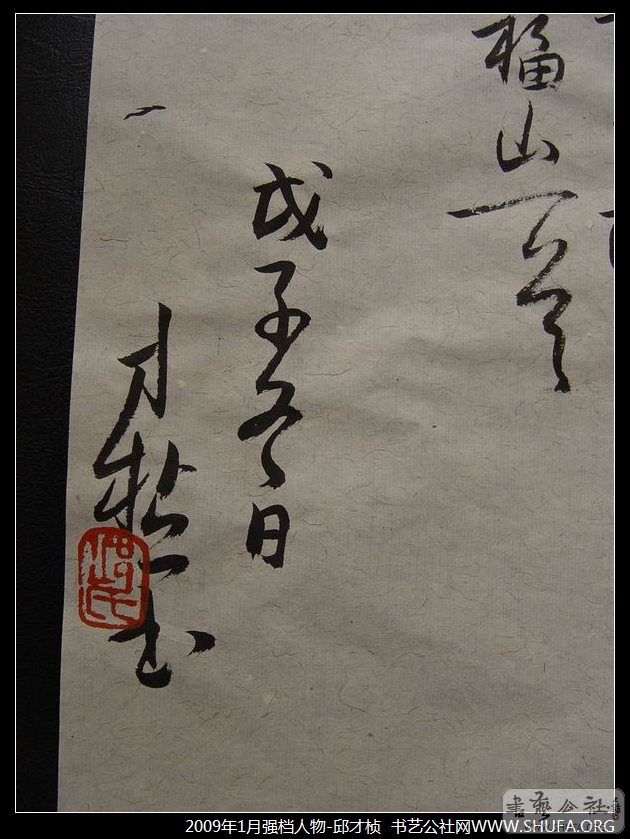 福山寺
戊子冬日
才桢书
2009年1月强档人物-邱才桢 书艺公社网WWW.SHUFA.ORG
書藝公社